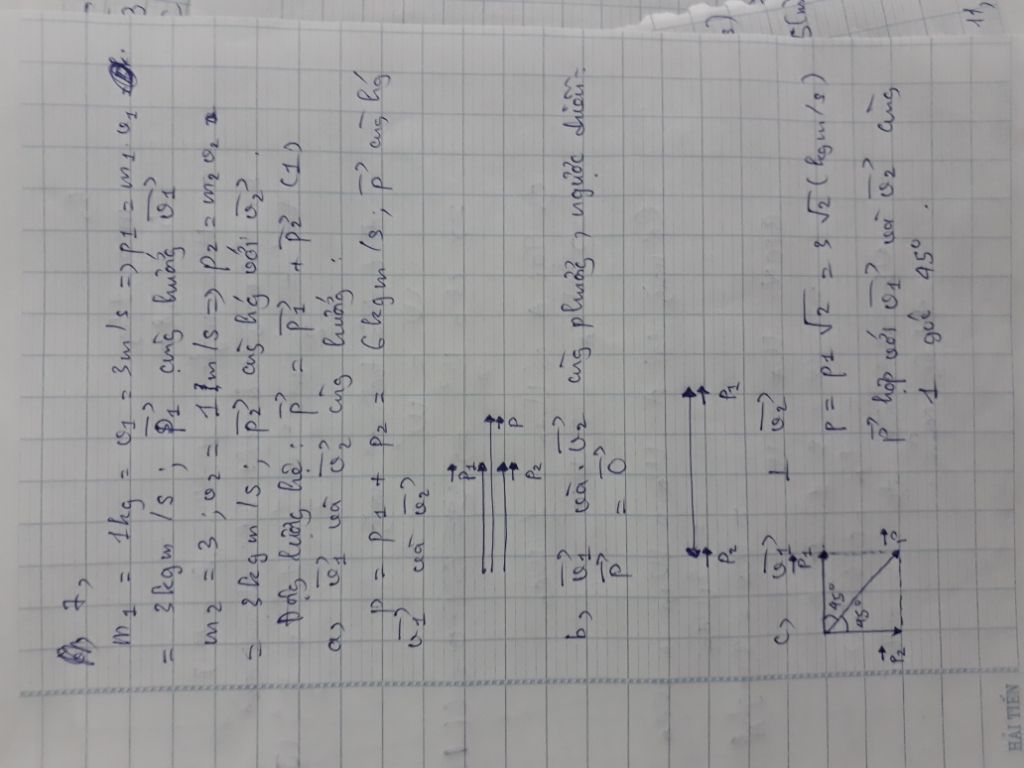 7,
m₁ = 1kg = v₁ = 3m/s => p1 = m1.v1
= 3kgm/s ; p₁→ cùng hướng v1→
m2 = 3 ; v2 = 1m/s => p2 = m2v2
= 3kgm/s ; p2→ cùng hg với v2→.
Động lượng hệ : p→ = p1→ + p2→ (1)
a, v1→ và v2→ cùng hướng :
p = p1 + p2 = 6kgm/s ; p→ cùng hg
v1→ và v2→
P₁→
P→
P₂→
b, v1→ và v2→ cùng phương, ngược chiều.
p→ = 0→
P₂→
P₁→
c, v1→ ⊥ v2→
P₁→
45°
45°
P→
P₂→
p = p1√2 = 3√2 (kgm/s)
p→ hợp với v1→ và v2→ cùng
1 góc 45°.
HẢI TIẾN
3
3)
5(m
11,